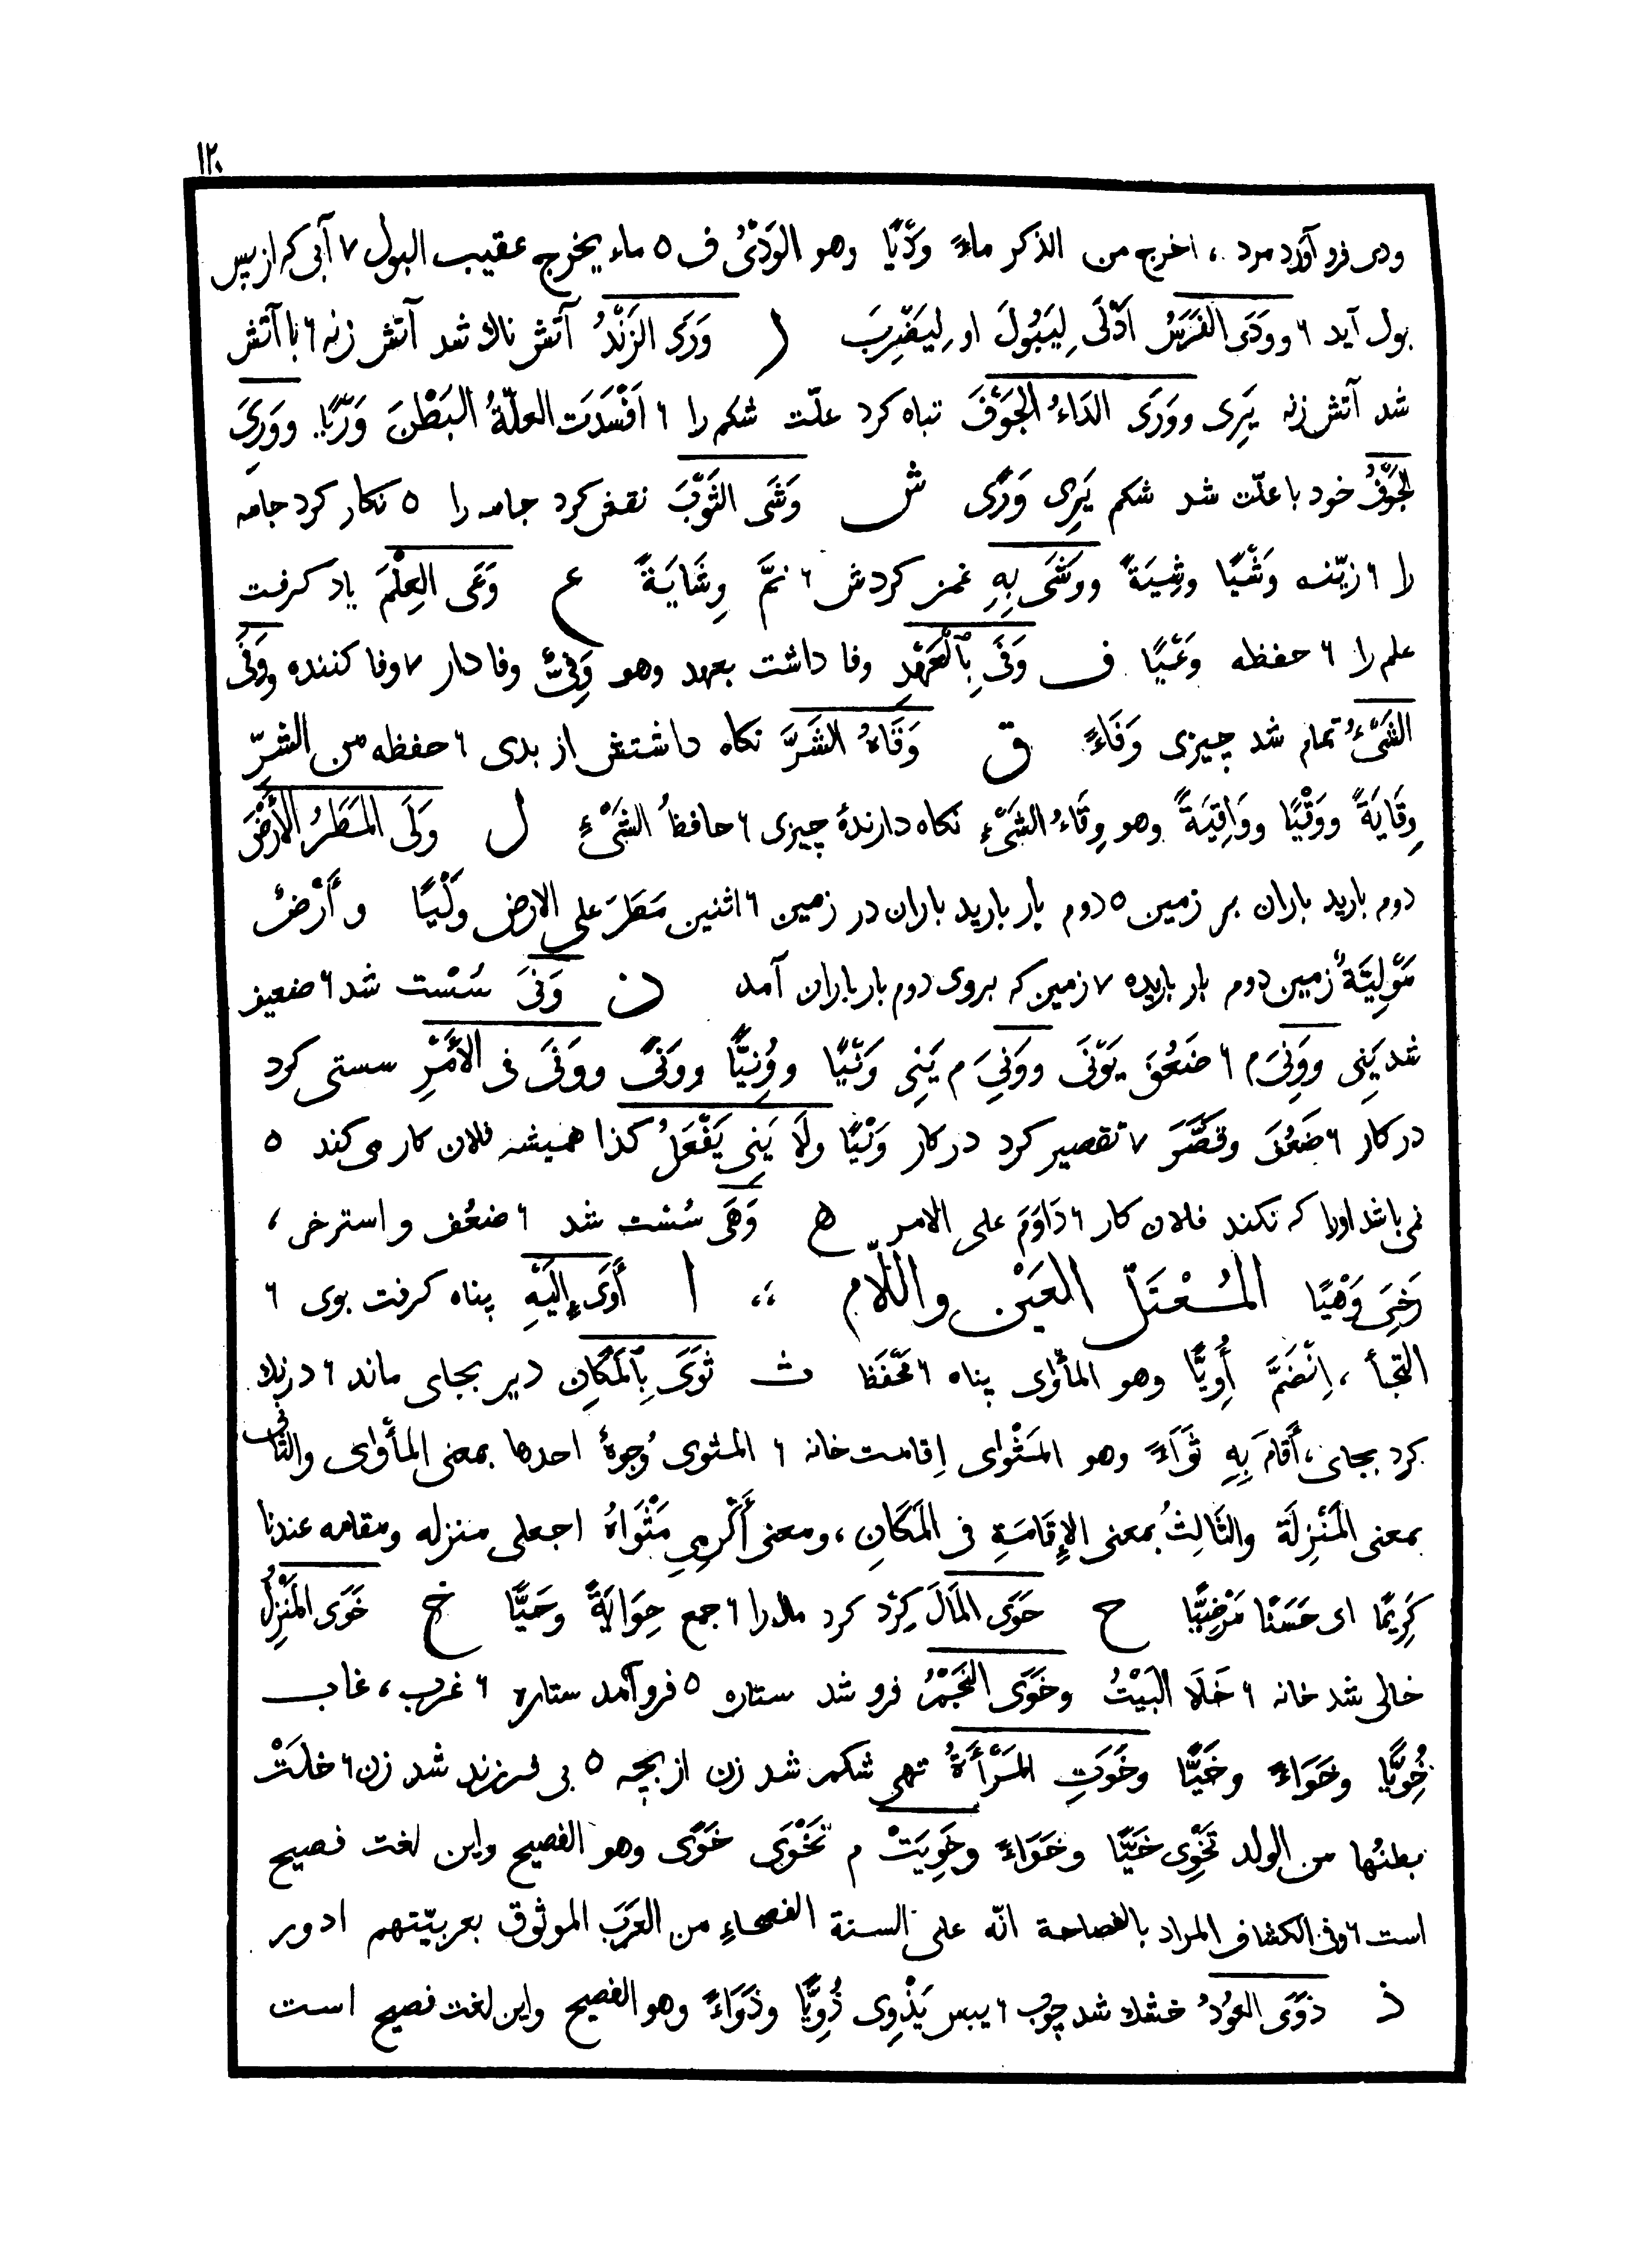 ١٢٠
ودی فرو آورد مرد ، اخرج من الذكر ماءً وَدْيًا وهو الوَدْیُ ف ٥ ماء يخرج عقيب البول ٧ آبی که از پس
بول آید ٦ وودَی الفَرَسُ اَدْلَی لِیَبُولَ او لِیَضْرِبَ ر وَرَی الزَنْدُ آتش ناك شد آتش زنه ٦ با آتش
شد آتش زنه یَرِی ووَرَی الدَاءُ الجَوْفَ تباه کرد علّت شکم را ٦ اَفْسَدَت العلّةُ البَطْنَ وَرْیًا ووَرِیَ
الجَوْفُ خود با علّت شد شکم یَرِی وَرًی ش وَشَی الثَوْبَ نقش کرد جامه را ٥ نکار کرد جامه
را ٦ زیّنه وَشْیًا وشِیَةً ووَشَی بِهِ غمز کردش ٦ نَمَّ وِشَایَةً ع وَعَی العِلْمَ یاد کرفت
علم را ٦ حفظه وَعْیًا ف وَفَی بِالْعَهْدِ وفا داشت بعهد وهو وَفِیٌّ وفا دار ٧ وفا کننده ووَفَی
الشَیْءُ تمام شد چیزی وَفَاءً ق وَقَاهُ الشَرَّ نکاه داشتش از بدی ٦ حفظه من الشرّ
وِقَایَةً ووَقْیًا ووَاقِیَةً وهو وِقَاءُ الشَیْءِ نکاه دارندهٔ چیزی ٦ حافظُ الشَیْءِ ل وَلَی المَطَرُ الأَرْضَ
دوم بارید باران بر زمین ٥ دوم بار بارید باران در زمین ٦ اثنین مَطَرَ علی الارض وَلْیًا وأَرْضٌ
مَوْلِیَّةٌ زمین دوم بار باریده ٧ زمین که بروی دوم بار باران آمد ن وَنَی سُسْت شد ٦ ضعیف
شد یَنِی ووَنِیَ م ٦ ضَعُفَ یَوْنَی ووَنِیَ م یَنِی وَنْیًا ووُنِیًّا ووَنًی ووَنَی فی الأَمْرِ سستی کرد
در کار ٦ ضَعُفَ وقَصَّرَ ٧ تقصیر کرد در کار وَنْیًا ولَا یَنِی یَفْعَلُ كذا همیشه فلان کار می کند ٥
نمی باشد اورا که نکند فلان کار ٦ دَاوَمَ علی الامر ه وَهَی سُست شد ٦ ضعُف و استرخی ،
رَخِیَ وَهْیًا المُعْتَلّ العَیْن واللّام ،، ا أَوَی إِلَیْهِ پناه کرفت بوی ٦
التجأ ، اِنْضَمَّ أُوِیًّا وهو المأوای پناه ٦ ث ثَوَی بِالْمَکَانِ دیر بجای ماند ٦ درنك
کرد بجای ، أَقَامَ بِهِ ثَوَاءً وهو المَثْوای اِقامت خانه ٦ المثوی وُجوهٌ احدها بمعنی المأوای والثانی
بمعنی المَنْزِلَة والثَالِثُ بمعنی الإِقَامَةِ فی المَکَانِ ، ومعنی أَکْرِمِی مَثْوَاهُ اجعلی منزله ومقامه عندنا
کَرِیمًا ای حَسَنًا مَرْضِیًّا ح حَوَی المَالَ کِرْد کرد مال را ٦ جمع حِوَایَةً وحَیًّا خ خَوَی المَنْزِلُ
خالی شد خانه ٦ خَلَا البَیْتُ وخَوَی النَجْمُ فرو شد ستاره ٥ فرو آمد ستاره ٦ غرب ، غاب
خُوِیًّا وخَوَاءً وخَیًّا وخَوَتِ المَرْأَةُ تهی شکم شد زن از بچه ٥ بی فرزند شد زن ٦ خلَتْ
بطنُها من الولد تَخْوِی خَیًّا وخَوَاءً وخَوِیَتْ م تَخْوَی خَوًی وهو الفصیح واین لغت فصیح
است ٦ وفی الکشاف المراد بالفصاحة انّه علی السنة الفصحاءِ من العَرَبِ الموثوق بعربیّتهم ادور
ذ ذوَی العُودُ خشك شد چوب ٦ یبس یَذْوِی ذُوِیًّا وذَوَاءً وهو الفصیح واین لغت فصیح است